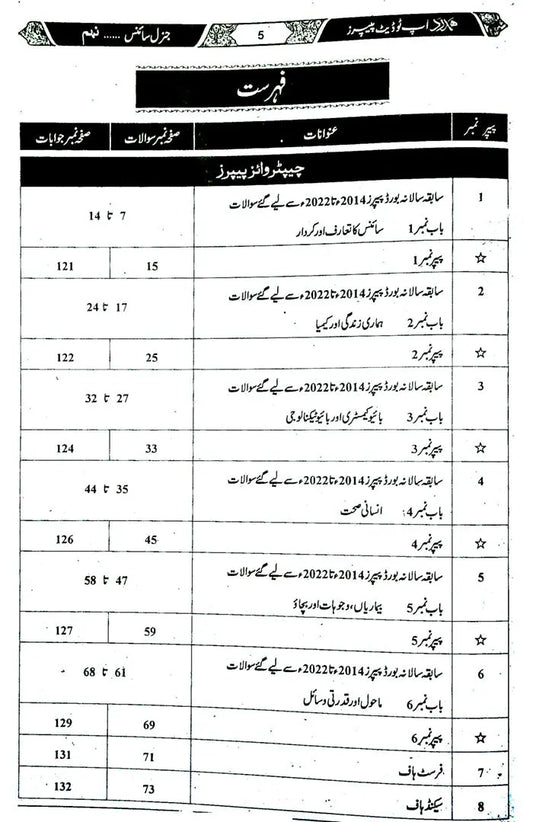 ہمدرد اپ ٹو ڈیٹ پیپرز 5 جنرل سائنس ...... نہم
فہرست
پیپر نمبر عنوانات صفحہ نمبر سوالات صفحہ نمبر جوابات
چیپٹر وائز پیپرز
1 سابقہ سالانہ بورڈ پیپرز 2014ء تا 2022ء سے لیے گئے سوالات
باب نمبر 1 سائنس کا تعارف اور کردار 7 تا 14
☆ پیپر نمبر 1 15 121
2 سابقہ سالانہ بورڈ پیپرز 2014ء تا 2022ء سے لیے گئے سوالات
باب نمبر 2 ہماری زندگی اور کیمیا 17 تا 24
☆ پیپر نمبر 2 25 122
3 سابقہ سالانہ بورڈ پیپرز 2014ء تا 2022ء سے لیے گئے سوالات
باب نمبر 3 بائیو کیمسٹری اور بائیو ٹیکنالوجی 27 تا 32
☆ پیپر نمبر 3 33 124
4 سابقہ سالانہ بورڈ پیپرز 2014ء تا 2022ء سے لیے گئے سوالات
باب نمبر 4: انسانی صحت 35 تا 44
☆ پیپر نمبر 4 45 126
5 سابقہ سالانہ بورڈ پیپرز 2014ء تا 2022ء سے لیے گئے سوالات
باب نمبر 5 بیماریاں، وجوہات اور بچاؤ 47 تا 58
☆ پیپر نمبر 5 59 127
6 سابقہ سالانہ بورڈ پیپرز 2014ء تا 2022ء سے لیے گئے سوالات
باب نمبر 6 ماحول اور قدرتی وسائل 61 تا 68
☆ پیپر نمبر 6 69 129
7 فرسٹ ہاف 71 131
8 سیکنڈ ہاف 73 132